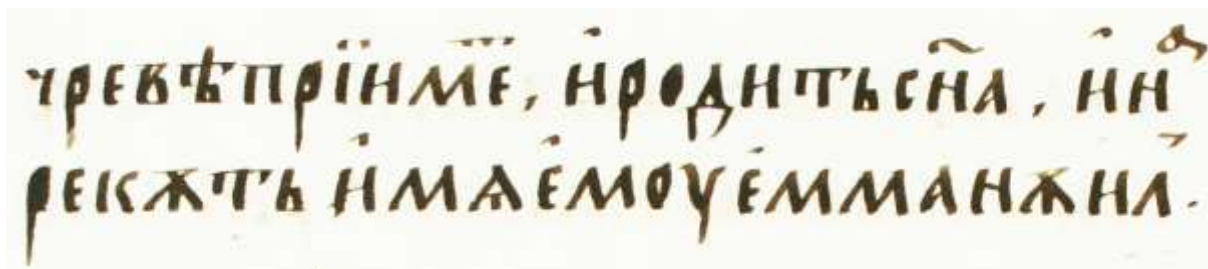 чревѣпрїимеⷮ, и҆родитьсн҃а, и҆нⷶ
рекѫть и҆мѧе҆моуе҆мманѫил.